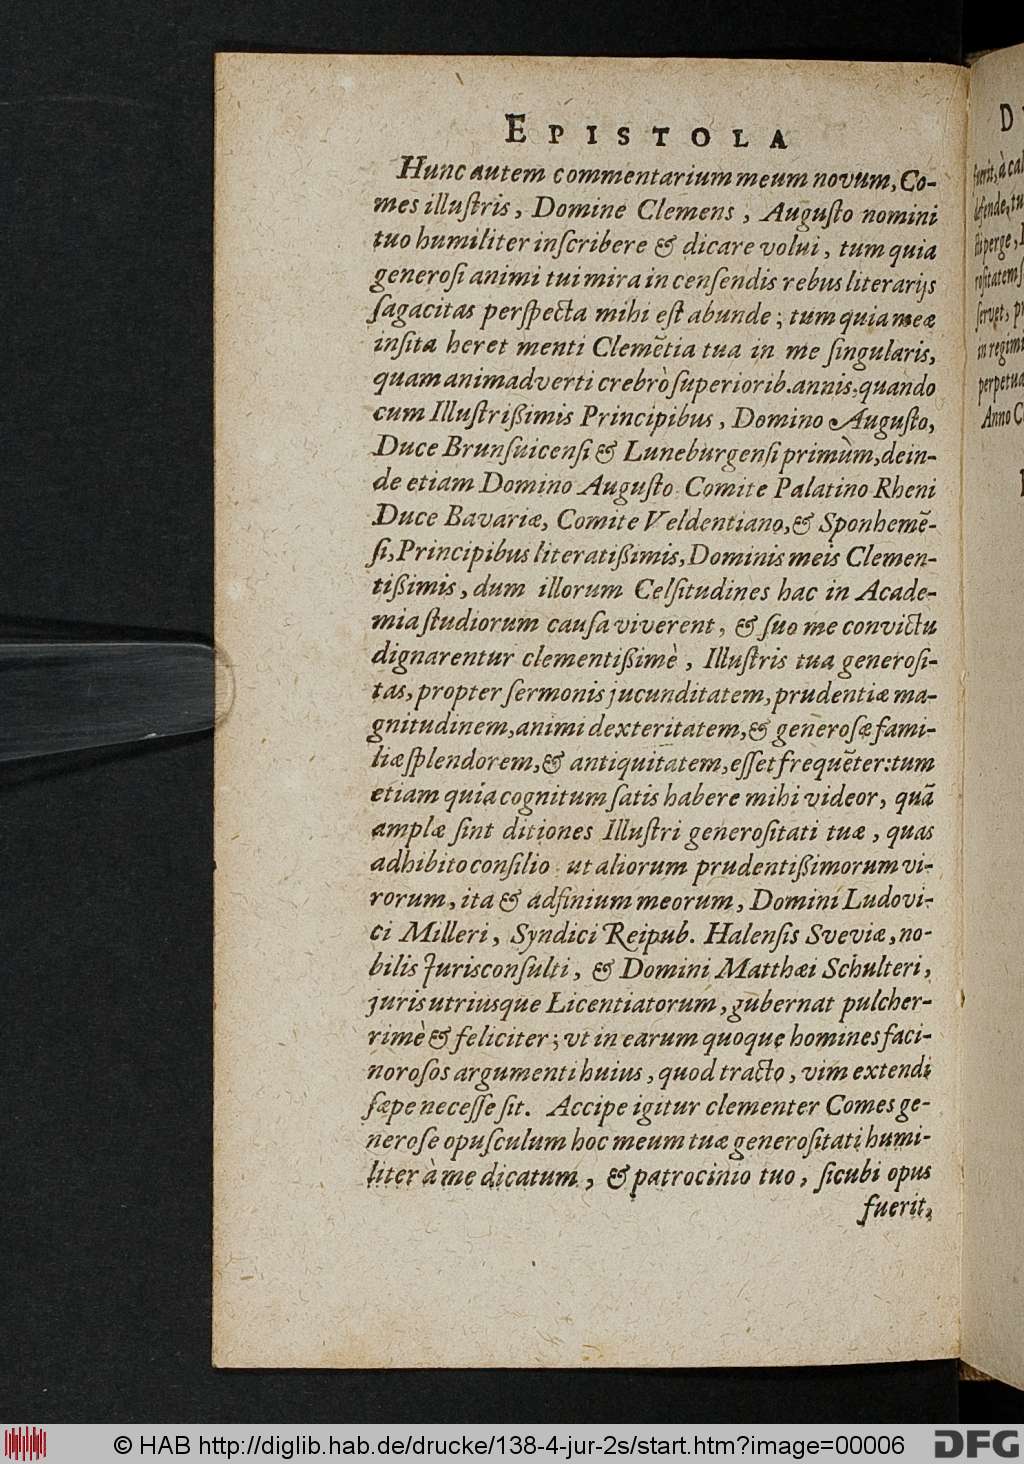 EPISTOLA
Hunc autem commentarium meum novum, Co-
mes illuſtris, Domine Clemens, Auguſto nomini
tuo humiliter inſcribere & dicare volui, tum quia
generoſi animi tui mira in cenſendis rebus literarijs
ſagacitas perſpecta mihi eſt abunde; tum quia meæ
inſita heret menti Clemẽtia tua in me ſingularis,
quam animadverti crebrò ſuperiorib. annis, quando
cum Illuſtrißimis Principibus, Domino Auguſto,
Duce Brunſuicenſi & Luneburgenſi primùm, dein-
de etiam Domino Auguſto Comite Palatino Rheni
Duce Bavariæ, Comite Veldentiano, & Sponhemẽ-
ſi, Principibus literatißimis, Dominis meis Clemen-
tißimis, dum illorum Celſitudines hac in Acade-
mia ſtudiorum cauſa viverent, & ſuo me convictu
dignarentur clementißimè, Illuſtris tua generoſi-
tas, propter ſermonis jucunditatem, prudentiæ ma-
gnitudinem, animi dexteritatem, & generoſæ fami-
liæ ſplendorem, & antiquitatem, eſſet frequẽter: tum
etiam quia cognitum ſatis habere mihi videor, quã
amplæ ſint ditiones Illuſtri generoſitati tuæ, quas
adhibito conſilio ut aliorum prudentißimorum vi-
rorum, ita & adfinium meorum, Domini Ludovi-
ci Milleri, Syndici Reipub. Halenſis Sveviæ, no-
bilis Jurisconſulti, & Domini Matthæi Schulteri,
juris utriusque Licentiatorum, gubernat pulcher-
rimè & feliciter; vt in earum quoque homines faci-
noroſos argumenti huius, quod tracto, vim extendi
ſæpe neceſſe ſit. Accipe igitur clementer Comes ge-
neroſe opuſculum hoc meum tuæ generoſitati humi-
liter à me dicatum, & patrocinio tuo, ſicubi opus
fuerit,
D
fuerit, à cal
defende, tu
perge,
ſervet, p
in regimi
perpetua
Anno C
© HAB http://diglib.hab.de/drucke/138-4-jur-2s/start.htm?image=00006
DFG